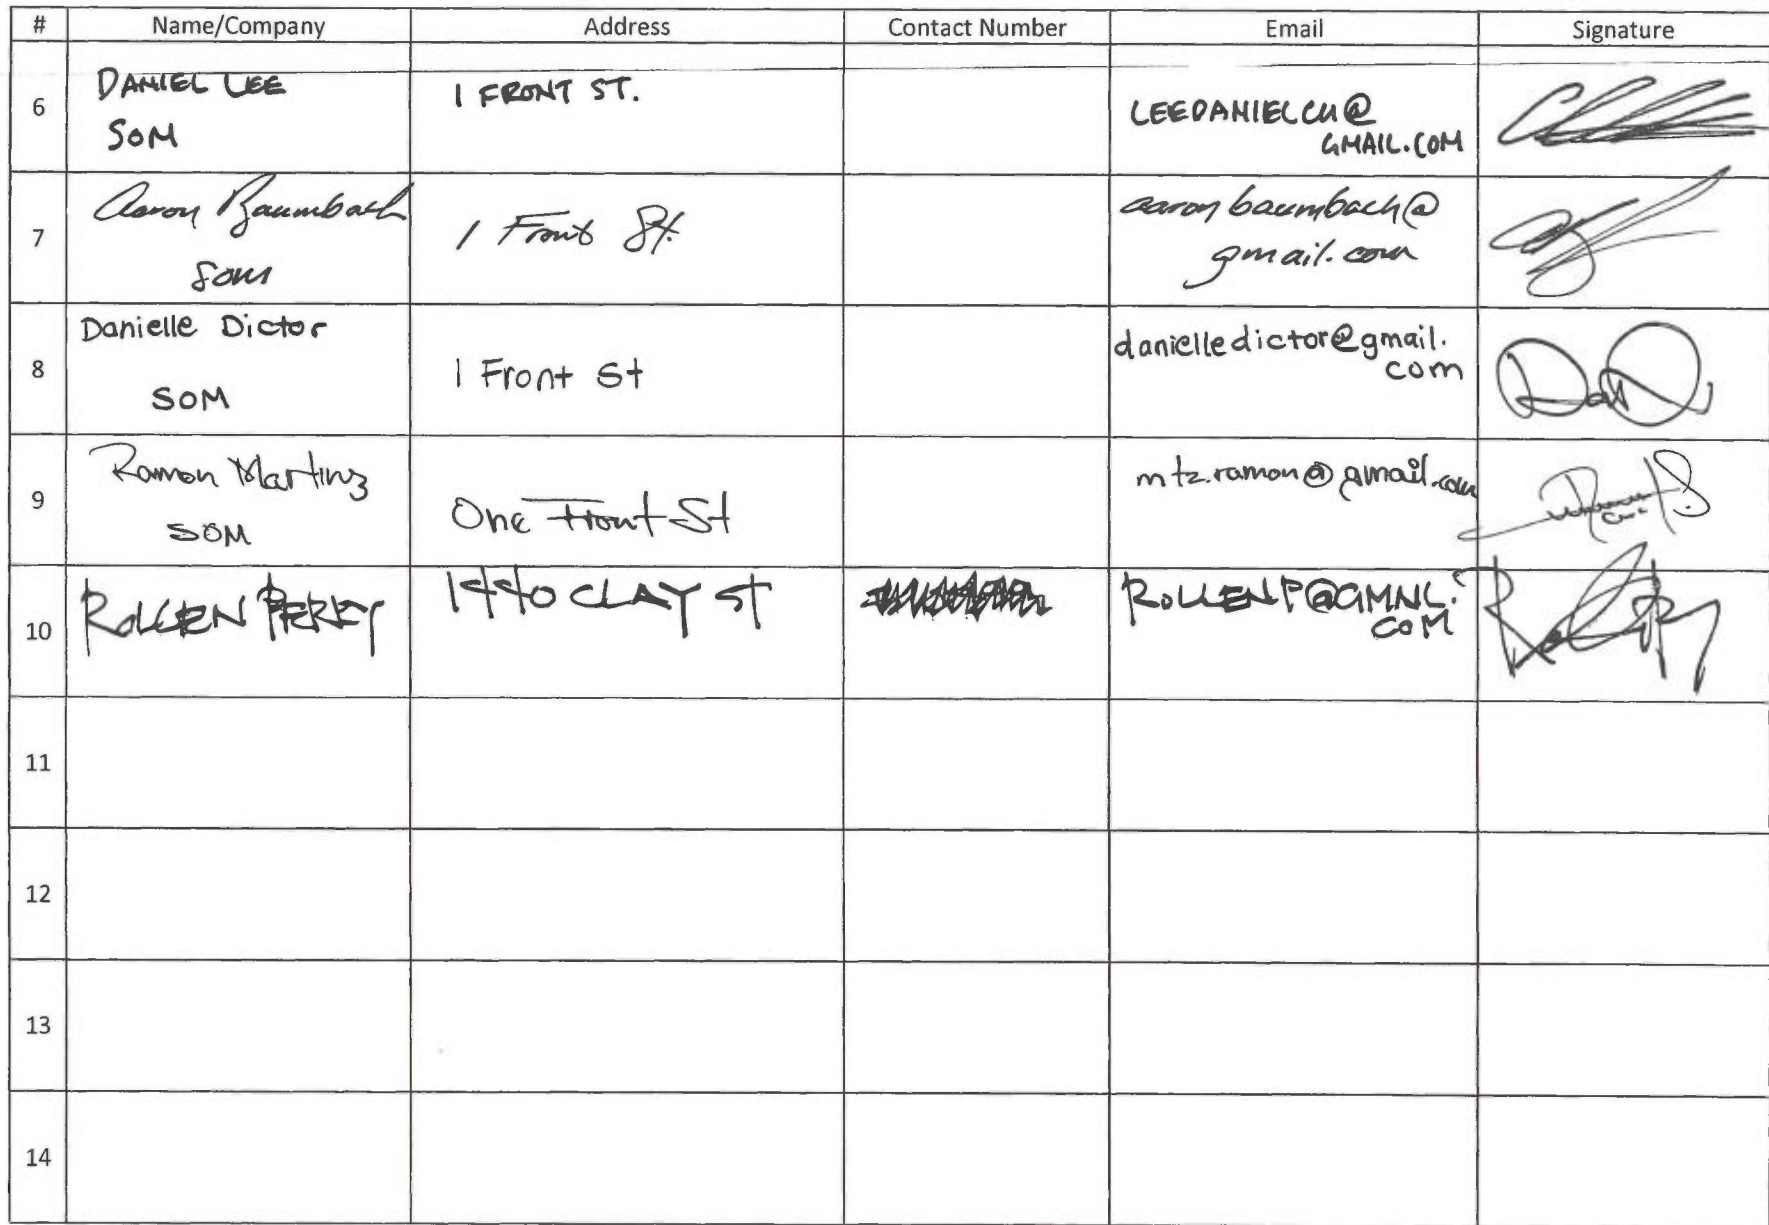 # Name/Company Address Contact Number Email Signature
6 DANIEL LEE 1 FRONT ST. LEEDANIELCH@
SOM GMAIL.COM
7 Aaron Baumbach 1 Front St. aaronbaumbach@
SOM gmail.com
8 Danielle Dictor 1 Front St danielledictor@gmail.
SOM com
9 Ramon Martinz One Front St mtz.ramon@gmail.com
SOM
10 ROLLEN PERRY 1440 CLAY ST ROLLENP@GMAIL.
COM
11
12
13
14